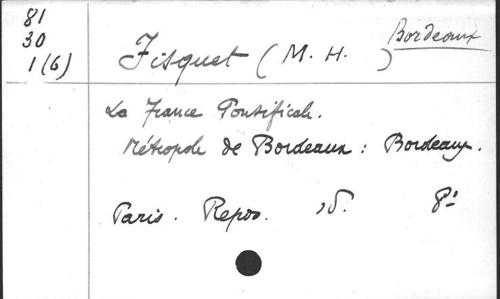 81
30
1(6)
Bordeaux
Fisquet (M. H. )
La France Pontificale.
Métropole de Bordeaux : Bordeaux.
Paris. Repos. s.d. 8º